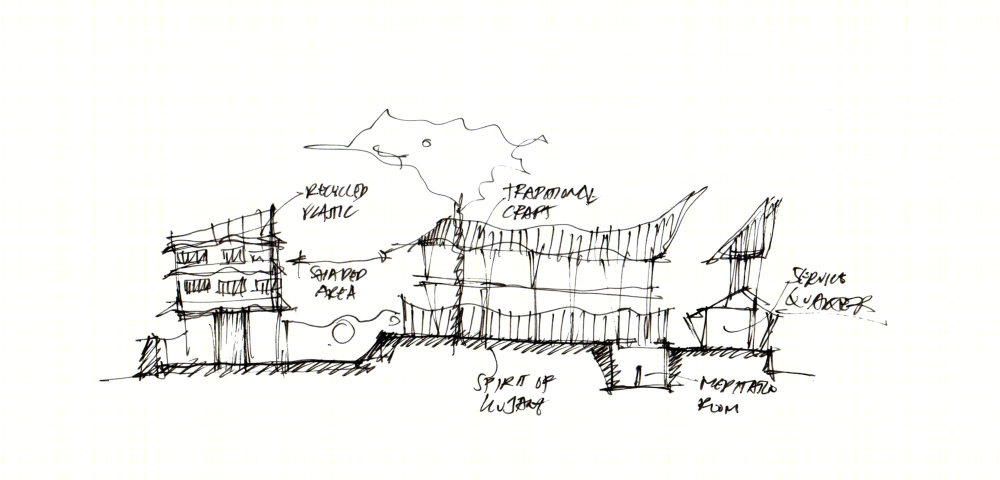 RECYCLED
PLASTIC
TRADITIONAL
CRAFT
SHARED
AREA
SERVICE
QUARTER
SPIRIT OF
KUJANG
MEDITATION
ROOM